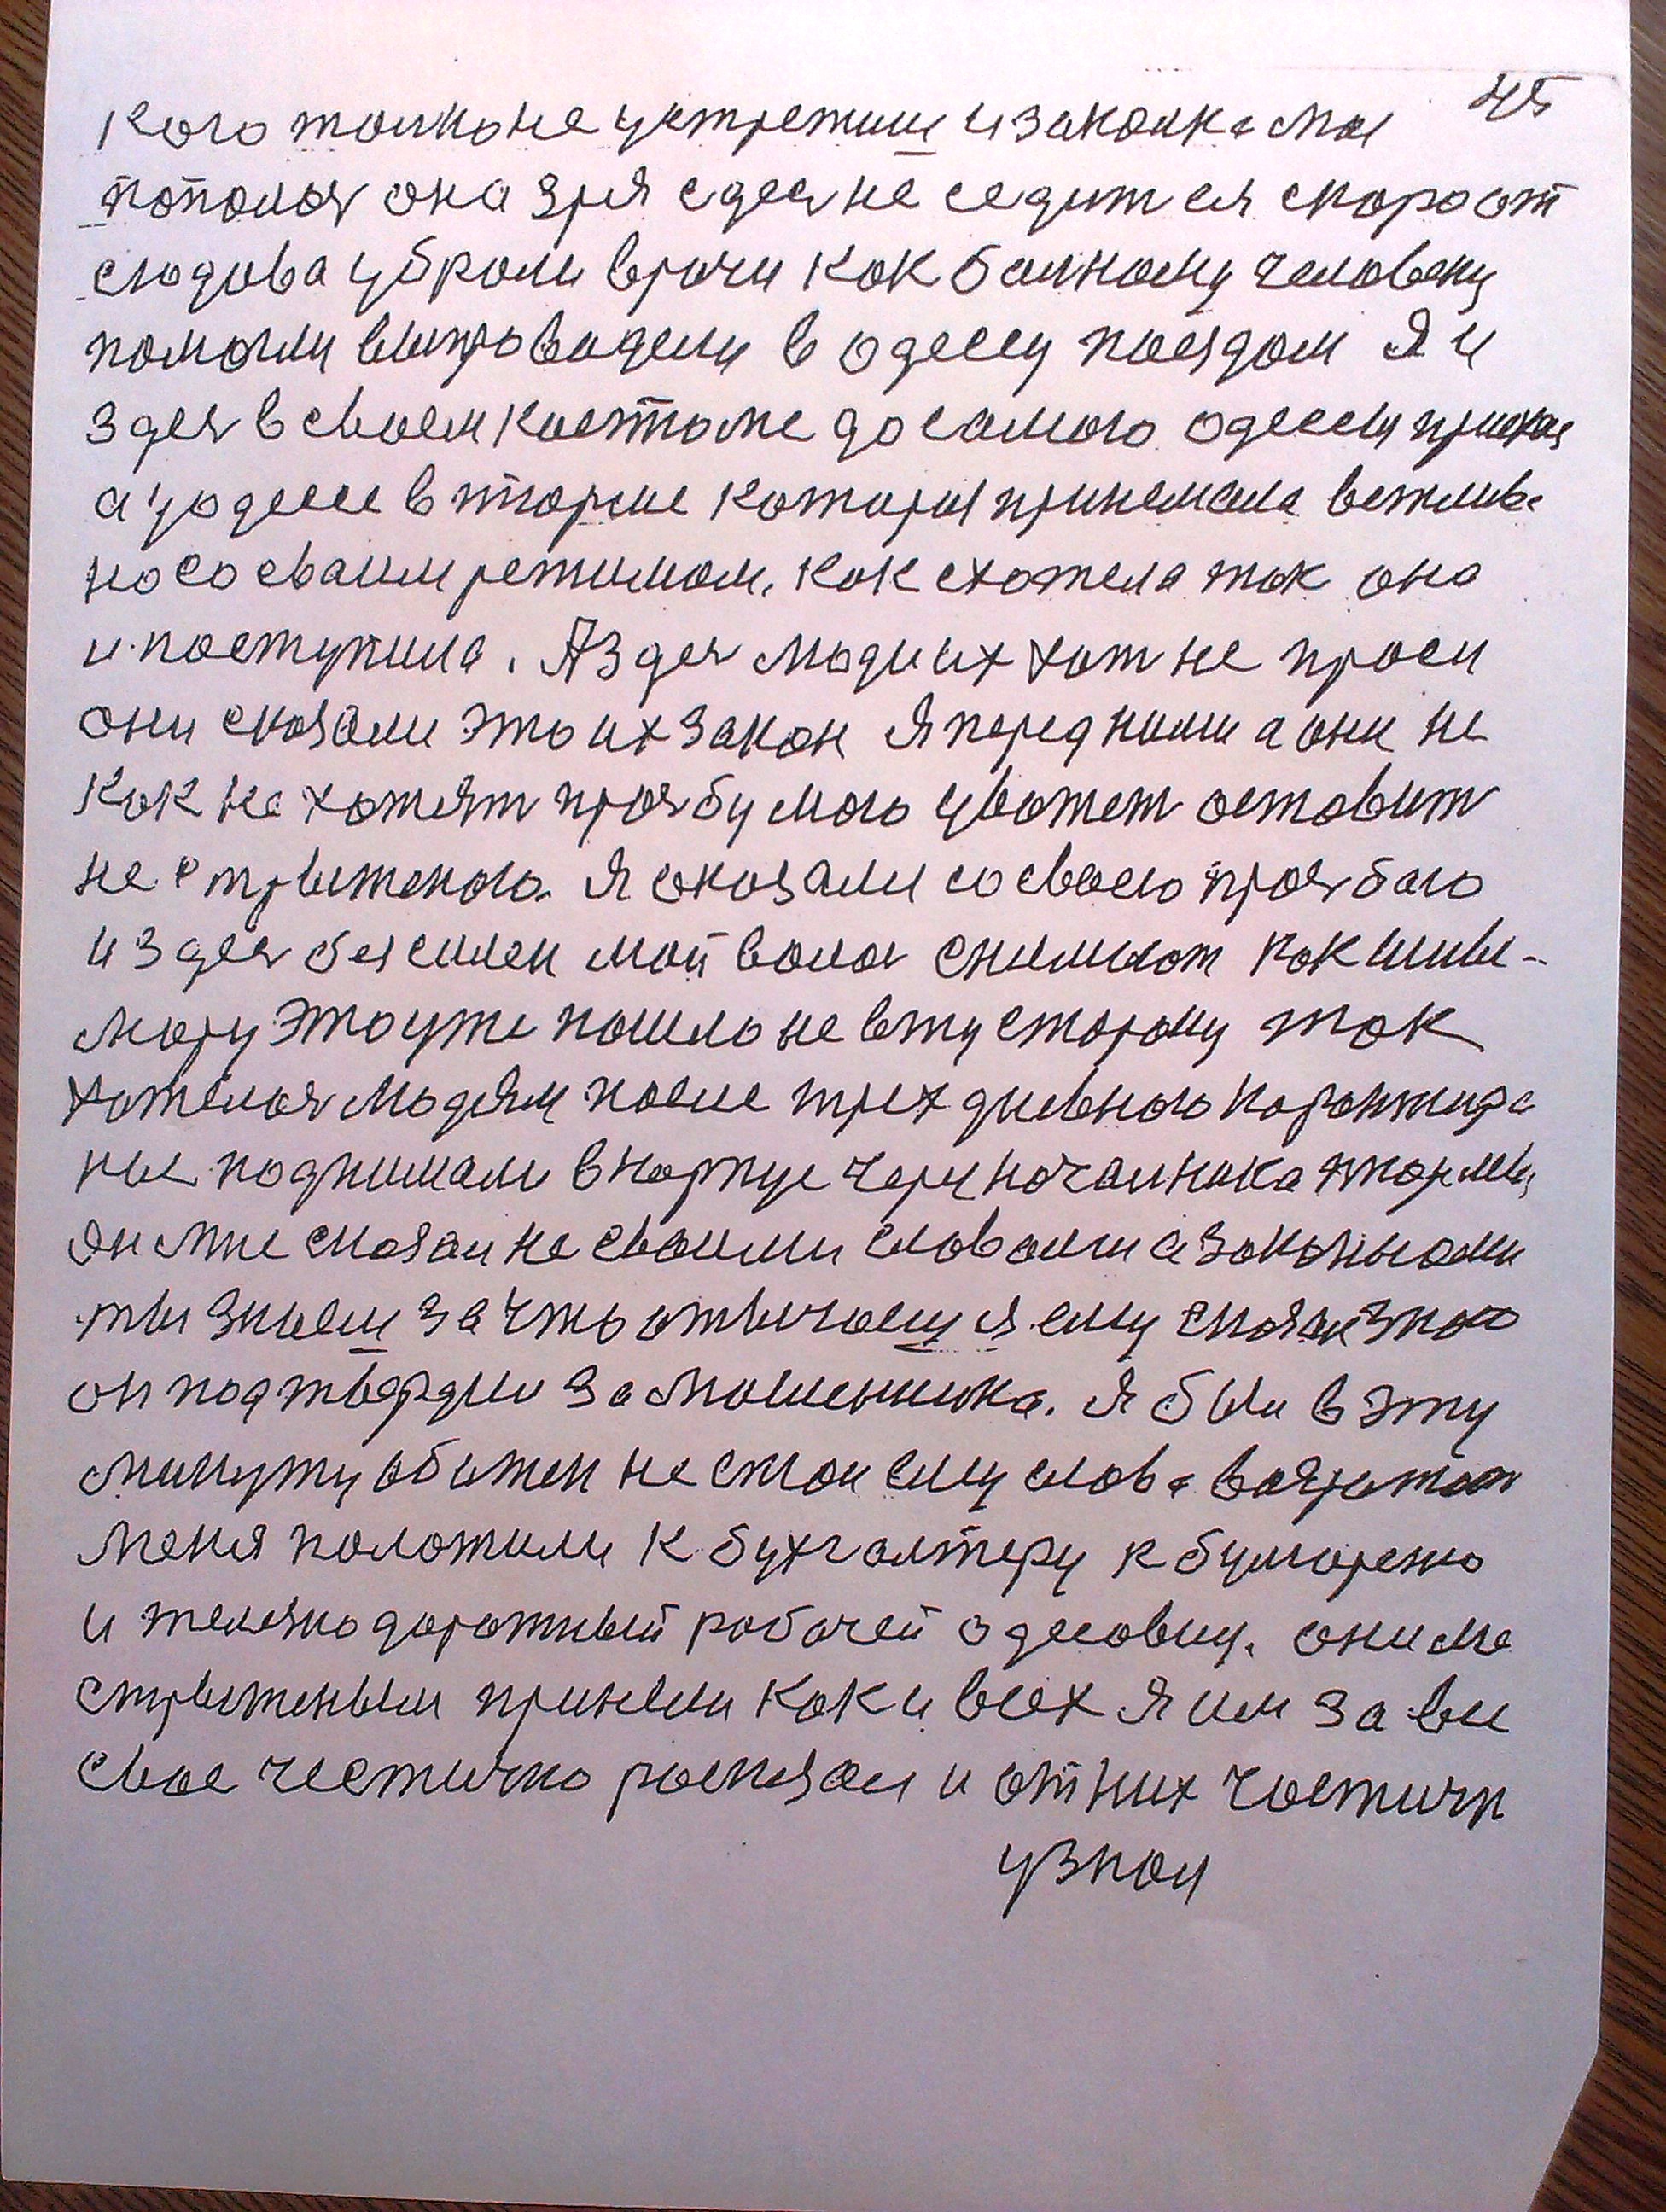 45
Кого толко не устретиш и за колка мы
пополся она зря сдес не седится скоро от
сюдова уброли врочи как болному человеку
помогли выпроводели в одессу поездом Я и
здес в своем костюме до самого одессы приехал
а уодессе в тюрме которая принемала
но со своим режимом. как схотела так она
и поступила. А здес люди их хот не проси
они сказали это их закон Я перед ними а они не
как не хотят прозбу мою уважет оставит
не стриженого. Я сказали со своею прозбаю
и здес безсилен мой волос снимают как
это уже пошло не в ту сторону так
хотелос людям после трех дневного
подпимали в карпус чериз начаника тюрмы
он мне сказал не своими словами а законными
ты знаеш за что отвичаеш я ему сказал знаю
он подтвердил за мошеника. Я был в эту
минуту обижен не стал ему слова
меня положили к бухгалтеру к
и железно дорожный рабочей одесовец. они мне
стриженым приняли как и всех я им за все
свое честично росказал и от них частичн
узнал